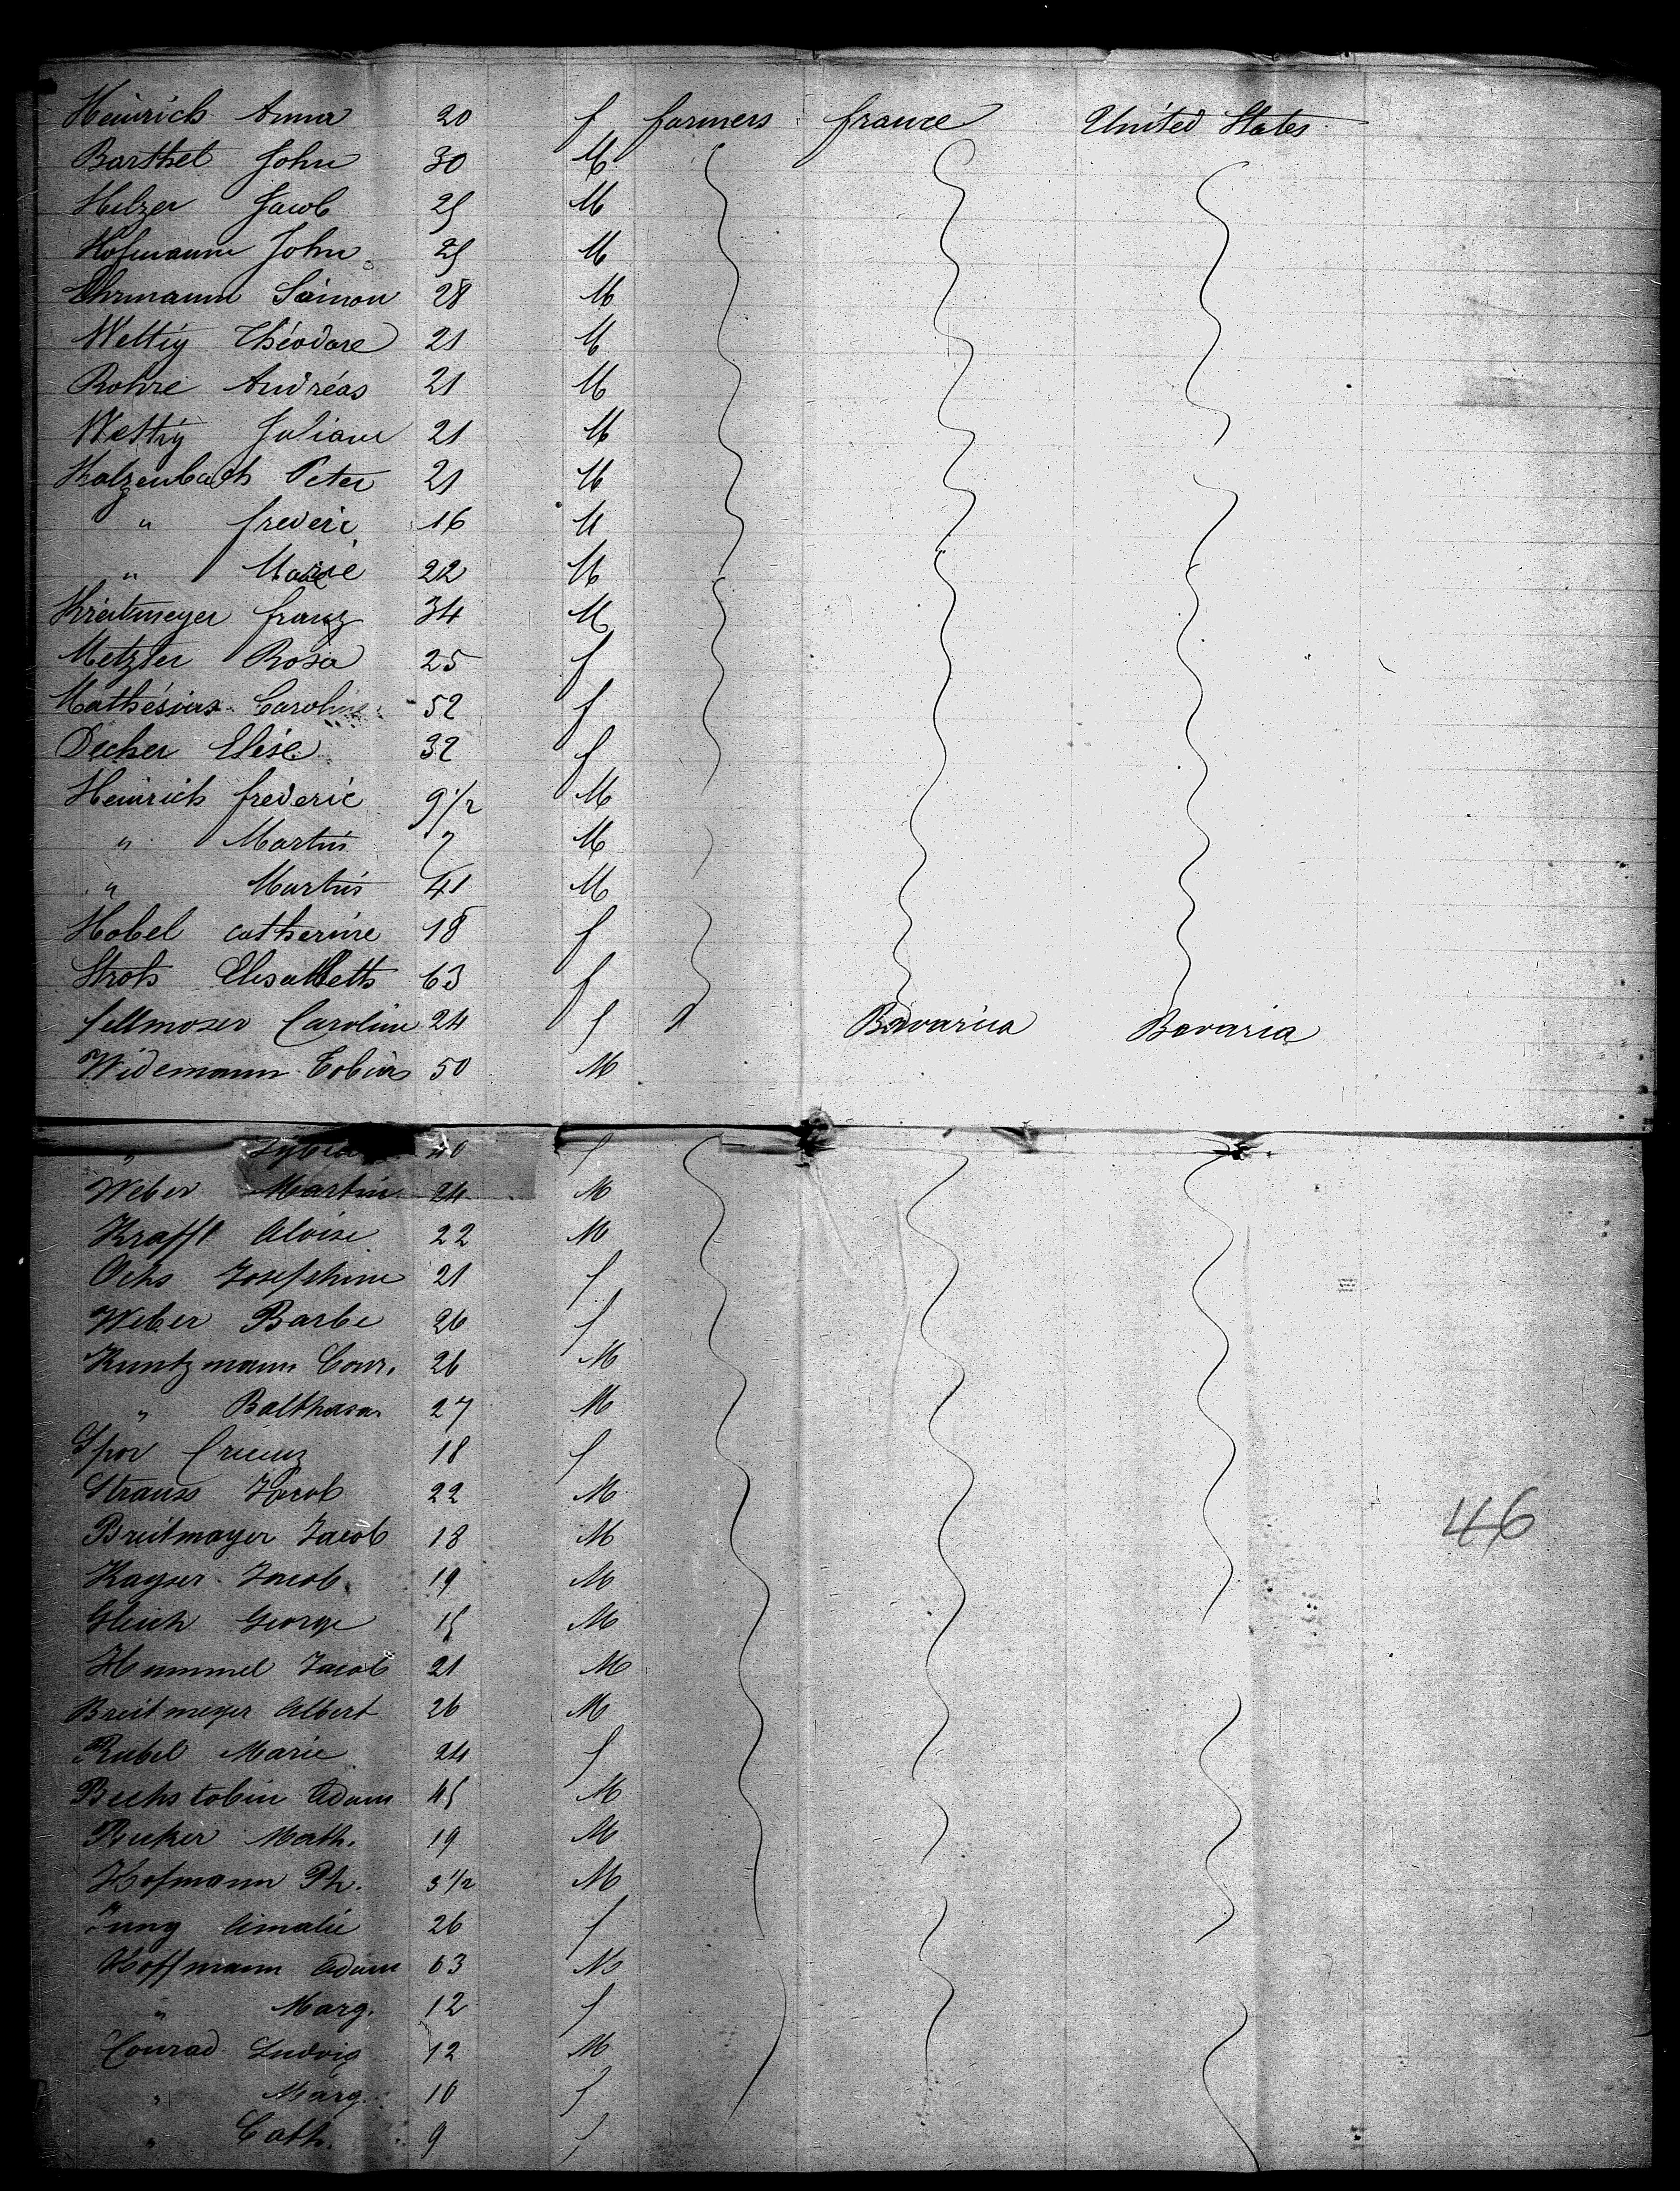 Heinrich Anna 20 f farmers france United States
Barthel John 30 M
Helzer Jacob 25 M
Hofmann John 25 M
Ehrmann Saimon 28 M
Wettig Théodore 21 M
Rohre Andréas 21 M
Wettig Juliane 21 M
Kalzenbach Peter 21 M
" frederic 16 M
" Marie 22 M
Kreitmeyer franz 34 M
Metzler Rosa 25 f
Mathésius Caroline 52 f
Decker Elise 32 f
Heinrich frederic 9 1/2 M
" Martin 7 M
" Martin 41 M
Hobel catherine 18 f
Stroh Elisabeth 63 f
fellmoser Caroline 24 f Bavaria Bavaria
Widemann Tobias 50 M
" 40 f
Weber Martin 24 M
Krafft Aloise 22 M
Ochs Josephine 21 f
Weber Barbe 26 f
Kuntzmann Conr. 26 M
" Balthasar 27 M
Spor Crienz 18 f
Strauss Jacob 22 M
Breitmayer Jacob 18 M
Kayser Jacob 19 M
Gleich George 15 M
Hummel Jacob 21 M
Breitmeyer Albert 26 M
Rubel Marie 24 f
Bechstobin Adam 45 M
Rucker Math. 19 M
Hofmann Ph. 3 1/2 M
Jung Amalie 26 f
Hoffmann Adam 63 M
" Marg. 12 f
Conrad Ludvig 12 M
" Marg. 10 f
" Cath. 9 f
46